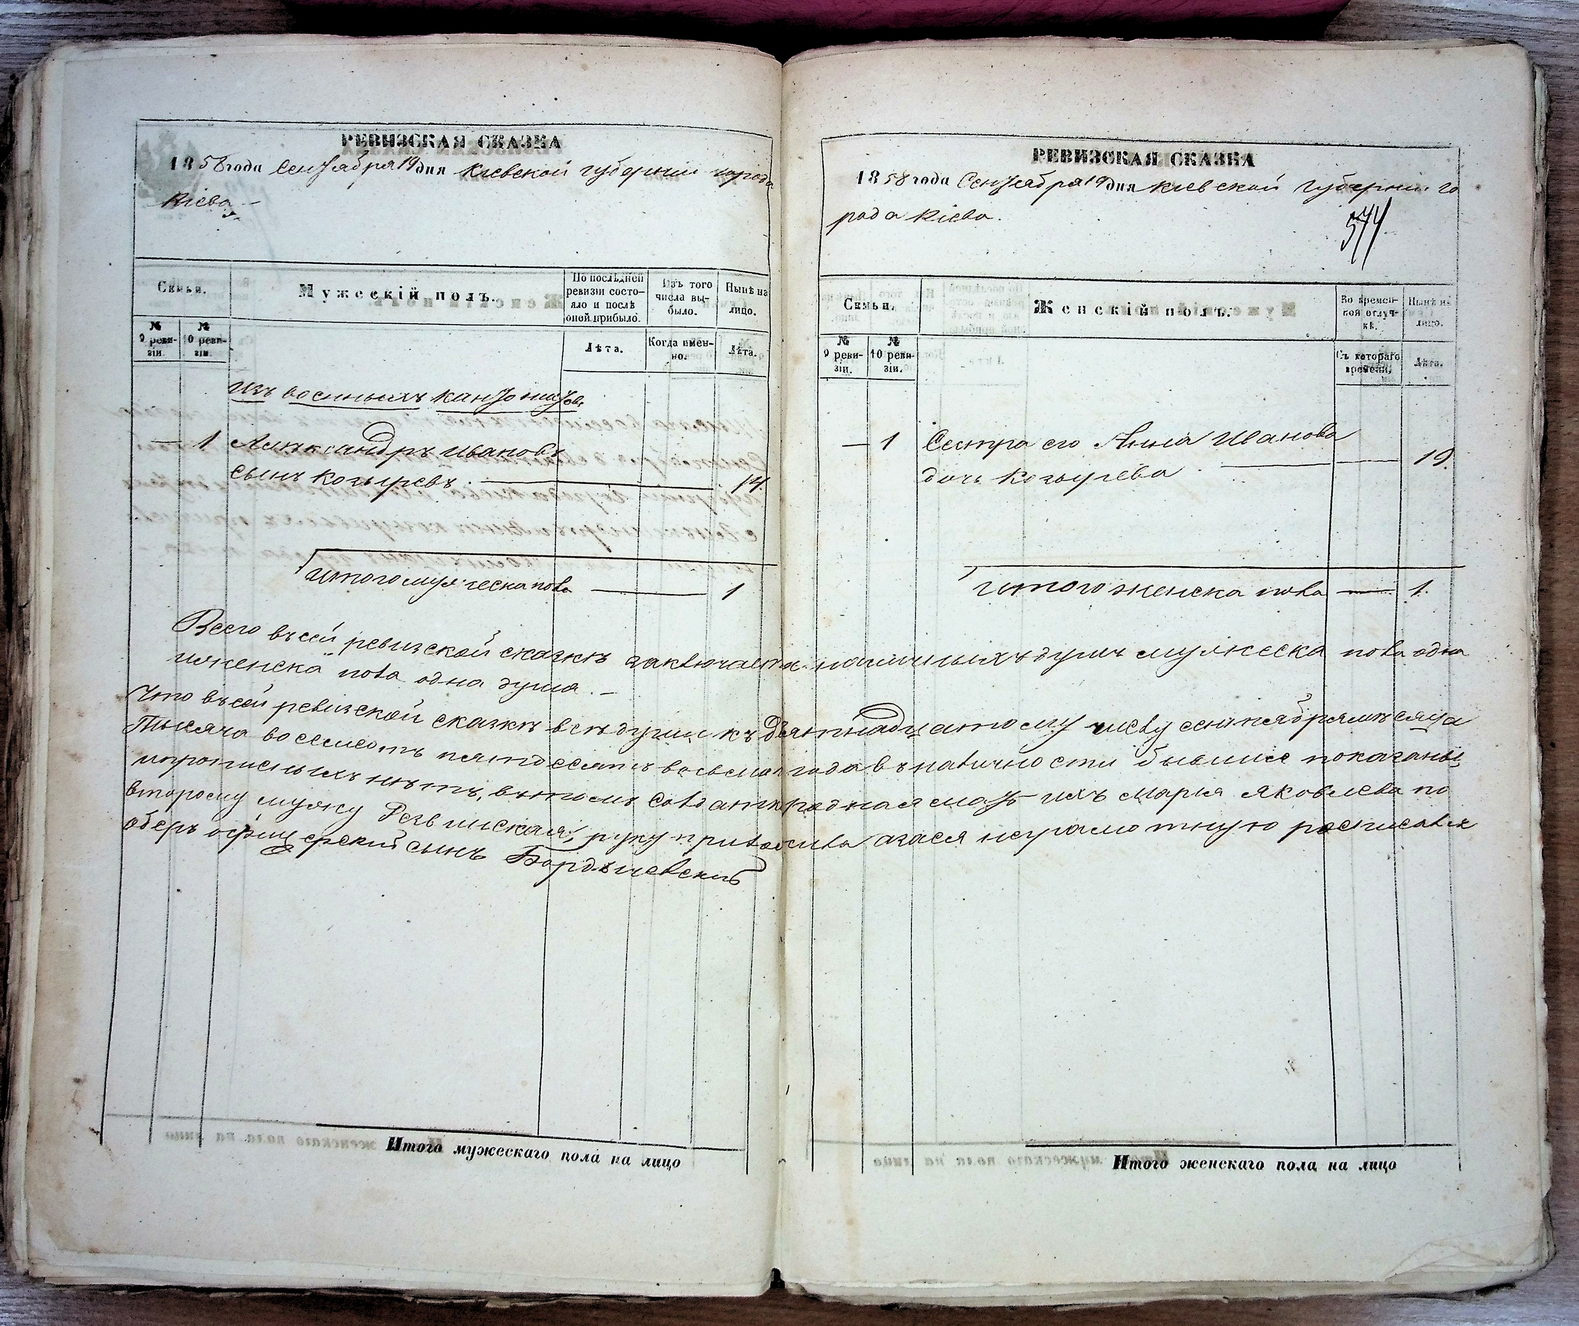 РЕВИЗСКАЯ СКАЗКА
1858 года Сентября 19 дня Киевской губернии города
Кіева
Семьи.
Мужескій полъ.
По послѣдней ревизіи состояло и послѣ оной прибыло.
Изъ того числа выбыло.
Нынѣ на лицо.
№ 9 ревизіи.
№ 10 ревизіи.
Лѣта.
Когда именно.
Лѣта.
Изъ военныхъ кантонистовъ
— 1 Александръ Ивановъ
сынъ Козыревъ. — 14.
Итого мужеска пола — 1
РЕВИЗСКАЯ СКАЗКА
1858 года Сентября 19 дня Киевской Губерніи го
рода Кіева.
574
Семьи.
Женскій полъ.
Во временной отлучкѣ.
Нынѣ на лицо.
№ 9 ревизіи.
№ 10 ревизіи.
Съ котораго времени.
Лѣта.
— 1 Сестра его Анна Иванова
дочь Козырева — 19.
Итого женска пола — 1.
Всего въ сей ревизской сказкѣ заключается наличныхъ душъ мужеска пола одна
и женска пола одна душа. —
Что въ сей ревизской сказкѣ всѣ души къ Девятнадцатому числу сентября мѣсяца
Тысяча восемсотъ пятдесятъ восьмого года въ наличности бывшие показаны
и прописныхъ нѣтъ, въ томъ родная мать ихъ Марья Яковлева по
второму мужу руку приложила а за нея неграмотную росписался
оберъ офицерский сынъ
Итого мужескаго пола на лицо
Итого женскаго пола на лицо